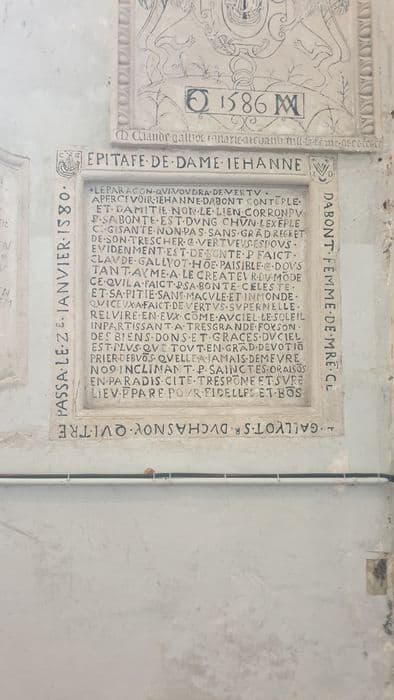 1586
EPITAFE·DE·DAME·IEHANNE
DABONT·FEMME·DE·MRE·CL
GALLYOT·S·DVCHASNOY·QVI·TRE
PASSA·LE·Z·IANVIER·1580·
LE·PARAGON·QVI·VOVDRA·DE·VERTV·
APERCEVOIR·IEHANNE·DABONT·CONTEPLE·
ET·DAMITIE·NON·LE·LIEN·CORRONPV
P·SA·BONTE·EST·DVNG·CHVN·LEXEPLE
C·GISANTE·NON·PAS·SANS·GRAD·REGRET
DE·SON·TRESCHER·&·VERTVEVS·ESPOVS·
EVIDENMENT·EST·DE·BONTE·P·FAICT·
CLAVDE·GALLYOT·HOE·PAISIBLE·&·DOVS
TANT·AYME·A·LE·CREATEVR·DV·MODE
CE·QVIL·A·FAICT·P·SA·BONTE·CELESTE·
ET·SA·PITIE·SANS·MACVLE·ET·INMONDE·
QVI·CEVX·A·FAICT·DE·VERTVS·SVPERNELLE·
RELVIRE·EN·EVX·COME·AV·CIEL·LE·SOLEIL
INPARTISSANT·A·TRESGRANDE·FOYSON·
DES·BIENS·DONS·ET·GRACES·DV·CIEL
EST·PLVS·QVE·TOVT·EN·GRAD·DEVOTIO
PRIER·DEBVOS·QVELLE·A·IAMAIS·DEMEVRE
NOS·INCLINANT·P·SAINCTES·ORAISOS
EN·PARADIS·CITE·ET·SVRE
LIEV·PPARE·POVR·FIDELLES·ET·BOS